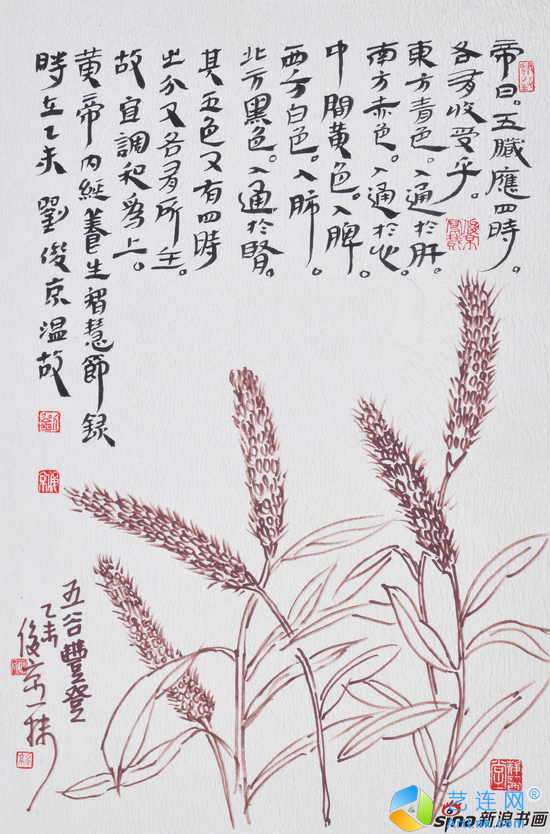 帝曰。五臟應四時。
各有收受乎。
東方青色。入通於肝。
南方赤色。入通於心
中間黃色。入脾。
西方白色。入肺。
北方黑色。入通於腎。
其五色又有四時
之分又各有所主。
故宜調和為上。
黃帝內經養生智慧節錄
時在乙未劉俊京溫故
五谷豐登
乙未
俊京一抹
艺连网®
sina新浪书画